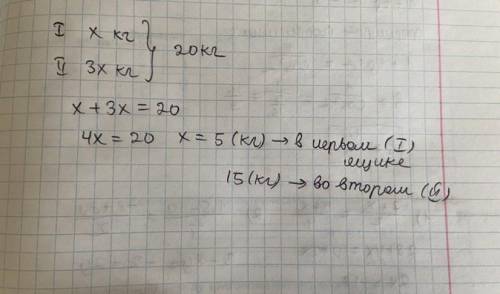 I x кг } 20кг
II 3x кг
x + 3x = 20
4x = 20 x = 5 (кг) → в первом (I)
ящике
15 (кг) → во втором (II)